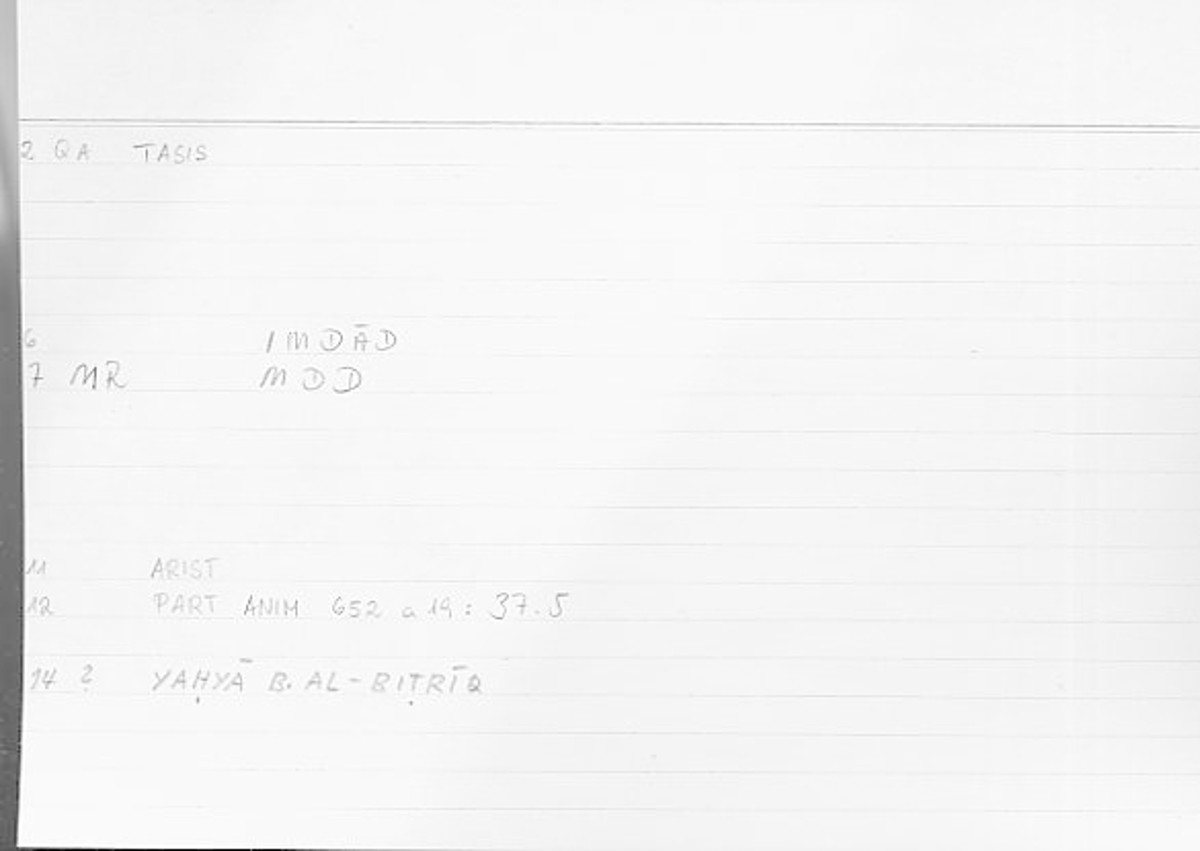 2 QA TASIS
6 IMDĀD
7 MR MDD
11 ARIST
12 PART ANIM 652 a 19 : 37.5
14 ? YAḤYĀ B. AL-BIṬRĪQ